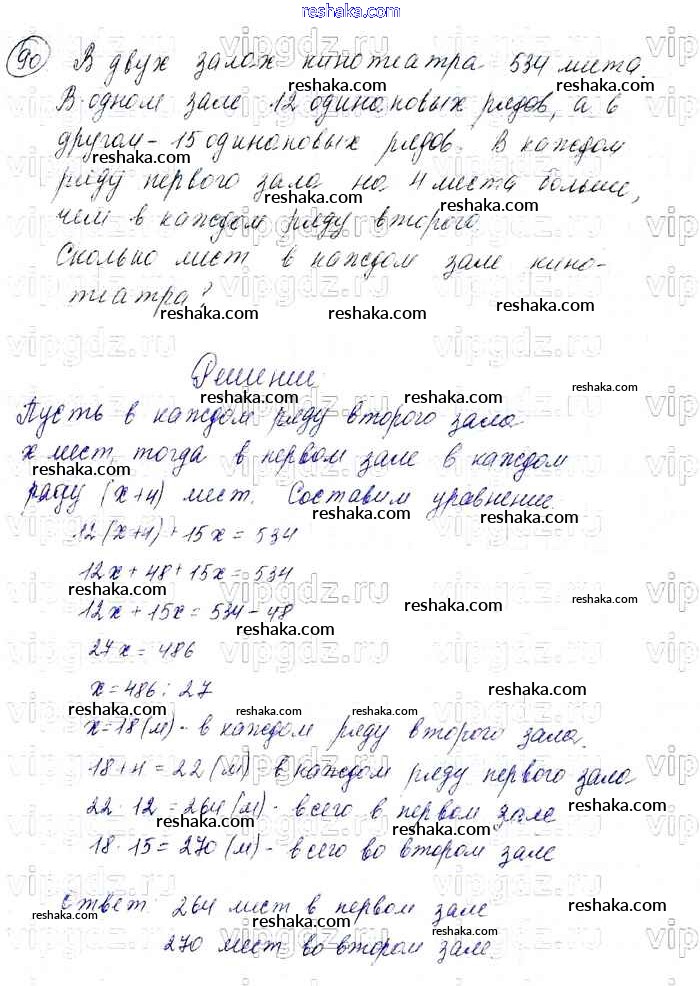 reshaka.com
90 В двух залах кинотеатра 534 места.
В одном зале 12 одинаковых рядов, а в
другом - 15 одинаковых рядов. В каждом
ряду первого зала на 4 места больше,
чем в каждом ряду второго.
Сколько мест в каждом зале кино-
театра?
Решение
Пусть в каждом ряду второго зала
x мест, тогда в первом зале в каждом
ряду (x+4) мест. Составим уравнение.
12(x+4)+15x=534
12x+48+15x=534
12x+15x=534-48
27x=486
x=486:27
x=18(м)- в каждом ряду второго зала.
18+4=22(м) в каждом ряду первого зала
22·12=264(м)- всего в первом зале
18·15=270(м)- всего во втором зале
Ответ: 264 мест в первом зале
270 мест во втором зале.